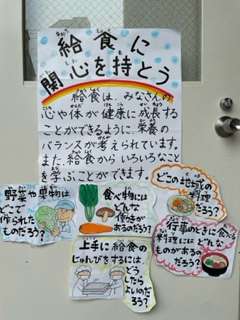 給食に
関心を持とう
給食は、みなさんの
心や体が健康に成長する
ことができるように栄養の
バランスが考えられています。
また給食からいろいろなこと
を学ぶことができます。
野菜や果物は
どこで
作られた
ものだろう?
食べ物には
どんな
働きが
あるのだろう?
どこの地いきの
料理
だろう?
行事のときに食べる
料理には どんな
ものがあるの
だろう?
上手に給食の
じゅんびをするには、
どう
したら
よいのだ
ろう?